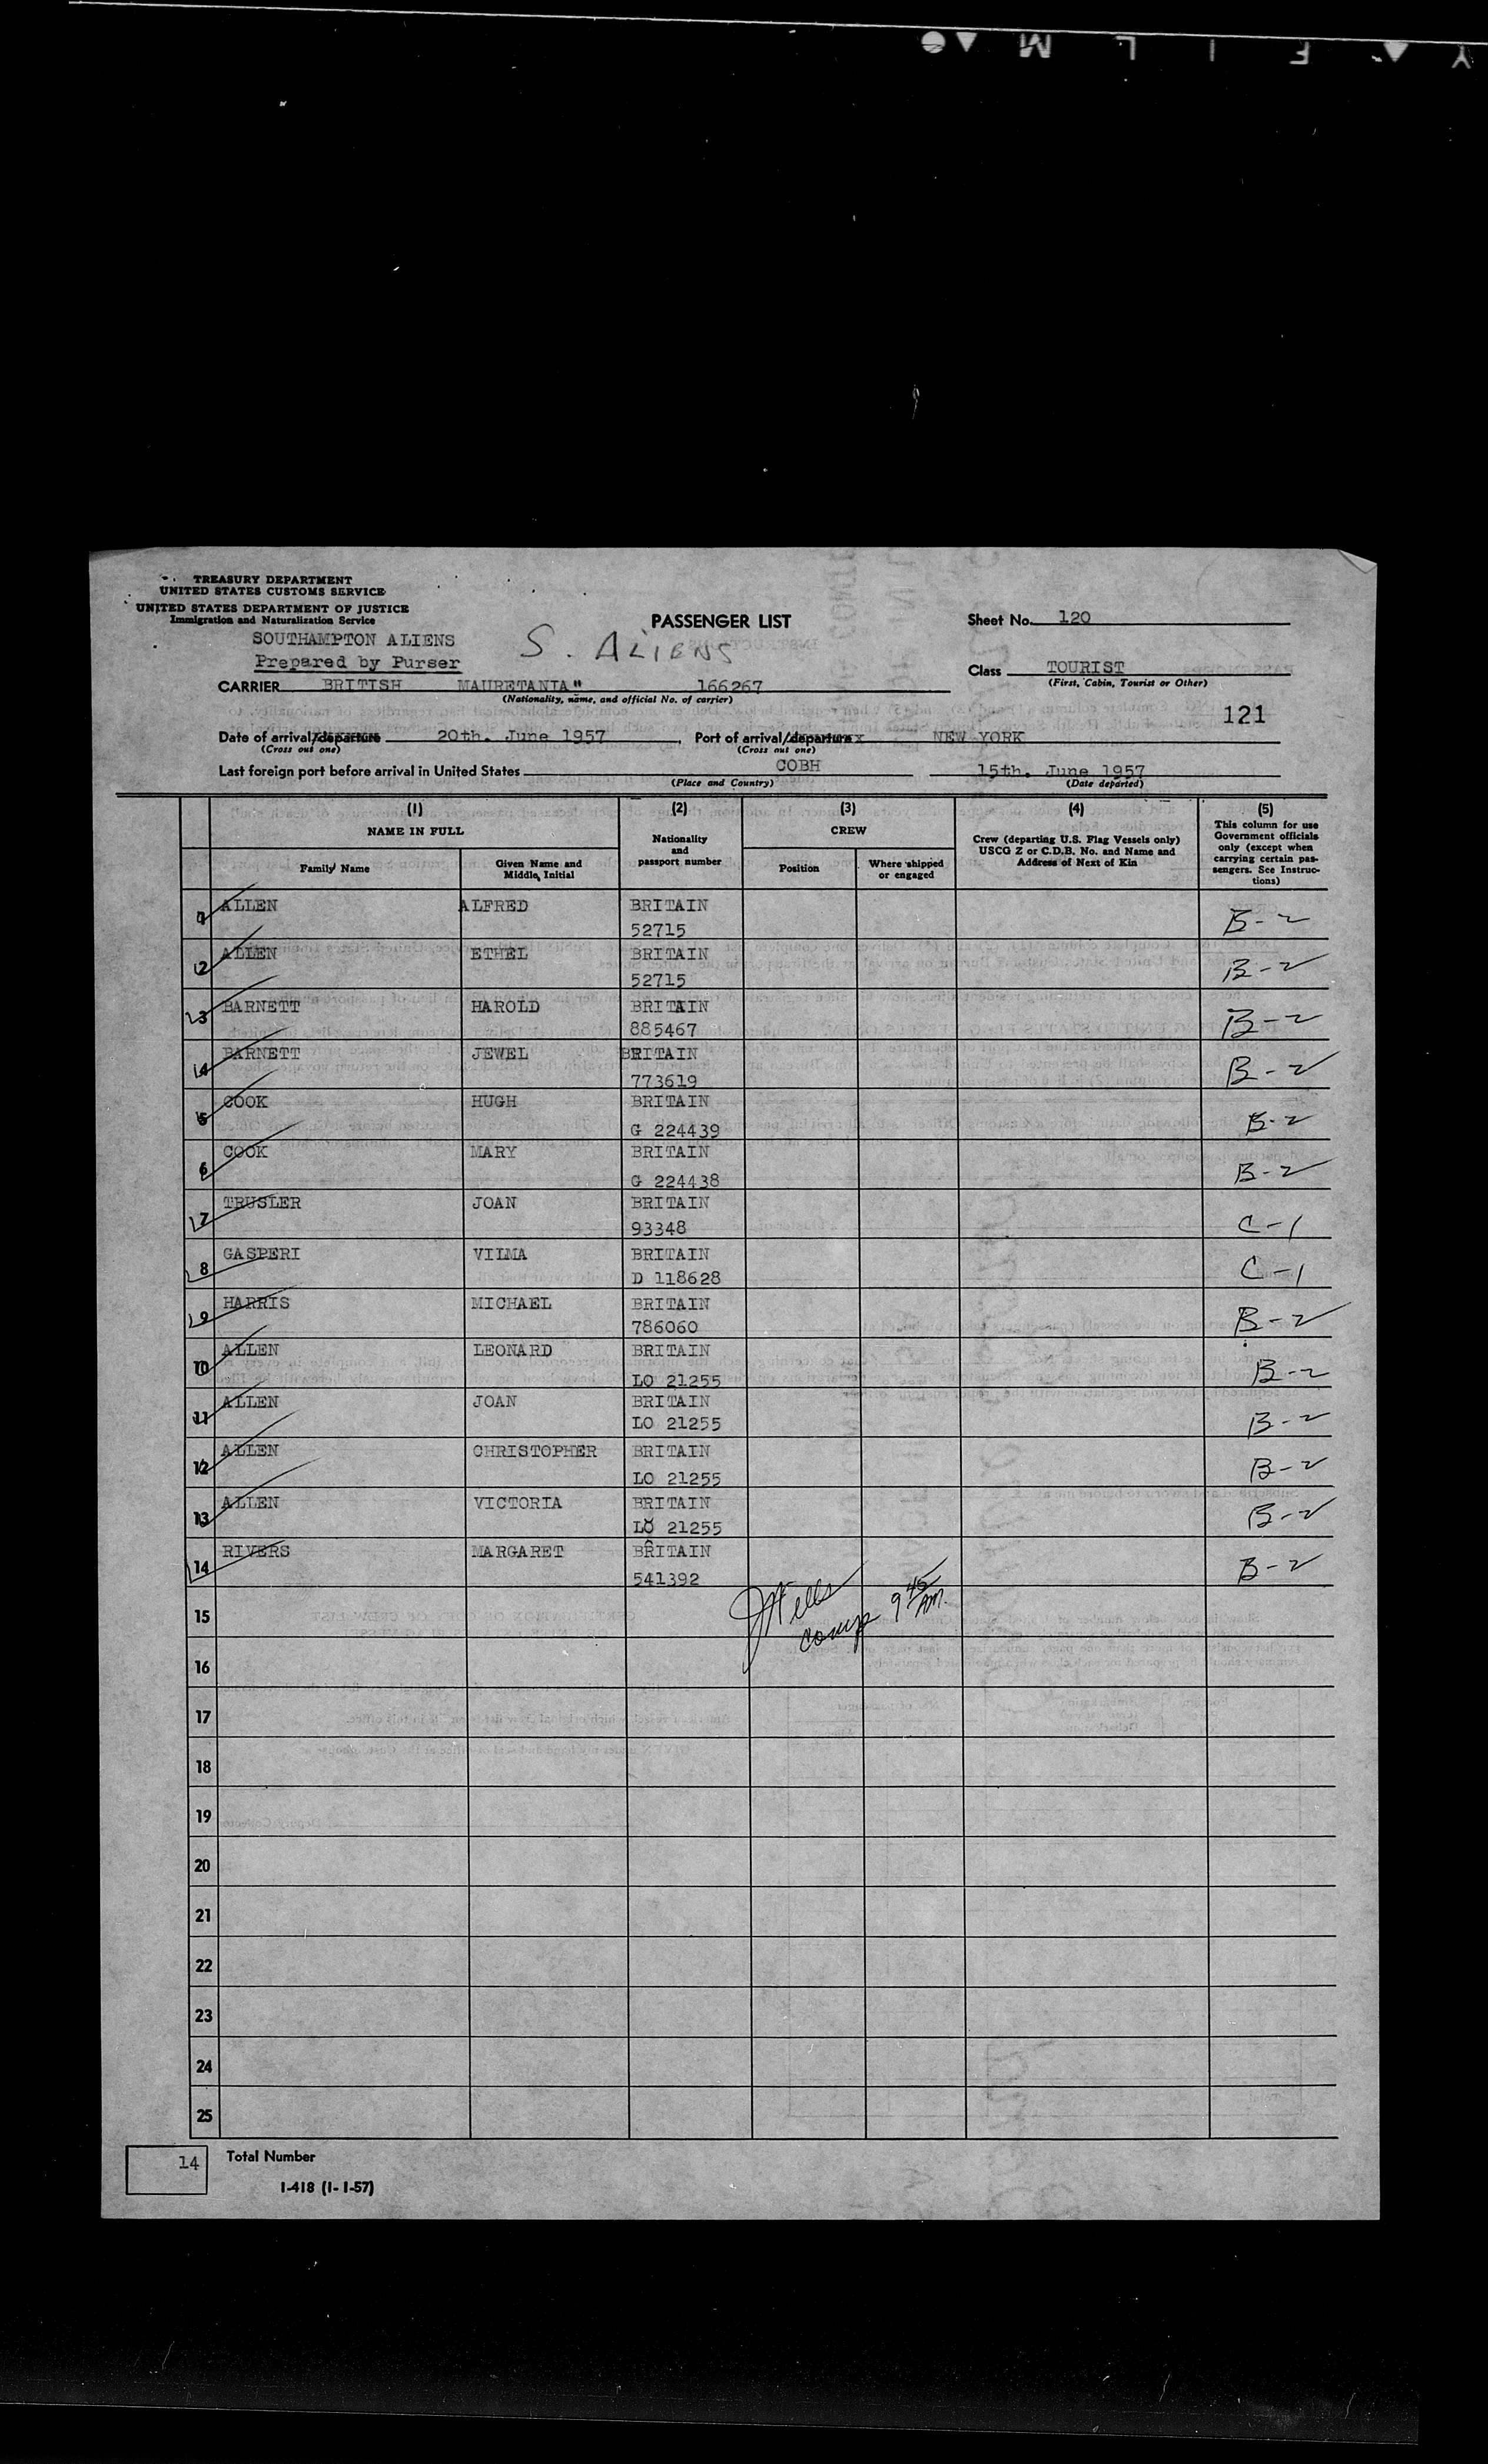 Y F I L M
TREASURY DEPARTMENT
UNITED STATES CUSTOMS SERVICE
UNITED STATES DEPARTMENT OF JUSTICE
Immigration and Naturalization Service
SOUTHAMPTON ALIENS
Prepared by Purser
S. ALIENS
PASSENGER LIST
Sheet No. 120
Class TOURIST
(First, Cabin, Tourist or Other)
CARRIER BRITISH MAURETANIA" 166267
(Nationality, name, and official No. of carrier)
121
Date of arrival/departure 20th. June 1957, Port of arrival/departure x NEW YORK
(Cross out one) (Cross out one)
Last foreign port before arrival in United States COBH 15th. June 1957
(Place and Country) (Date departed)
(1) (2) (3) (4) (5)
NAME IN FULL
Nationality and passport number
CREW
Crew (departing U.S. Flag Vessels only) USCG Z or C.D.B. No. and Name and Address of Next of Kin
This column for use Government officials only (except when carrying certain passengers. See Instructions)
Family Name
Given Name and Middle Initial
Position
Where shipped or engaged
1 ALLEN ALFRED BRITAIN B-2
52715
2 ALLEN ETHEL BRITAIN B-2
52715
3 BARNETT HAROLD BRITAIN B-2
885467
4 BARNETT JEWEL BRITAIN B-2
773619
5 COOK HUGH BRITAIN B-2
G 224439
6 COOK MARY BRITAIN B-2
G 224438
7 TRUSLER JOAN BRITAIN C-1
93348
8 GASPERI VILMA BRITAIN C-1
D 118628
9 HARRIS MICHAEL BRITAIN B-2
786060
10 ALLEN LEONARD BRITAIN B-2
LO 21255
11 ALLEN JOAN BRITAIN B-2
LO 21255
12 ALLEN CHRISTOPHER BRITAIN B-2
LO 21255
13 ALLEN VICTORIA BRITAIN B-2
LO 21255
14 RIVERS MARGARET BRITAIN B-2
541392
Wells
comp 9 45 AM.
15
16
17
18
19
20
21
22
23
24
25
14 Total Number
I-418 (1-1-57)